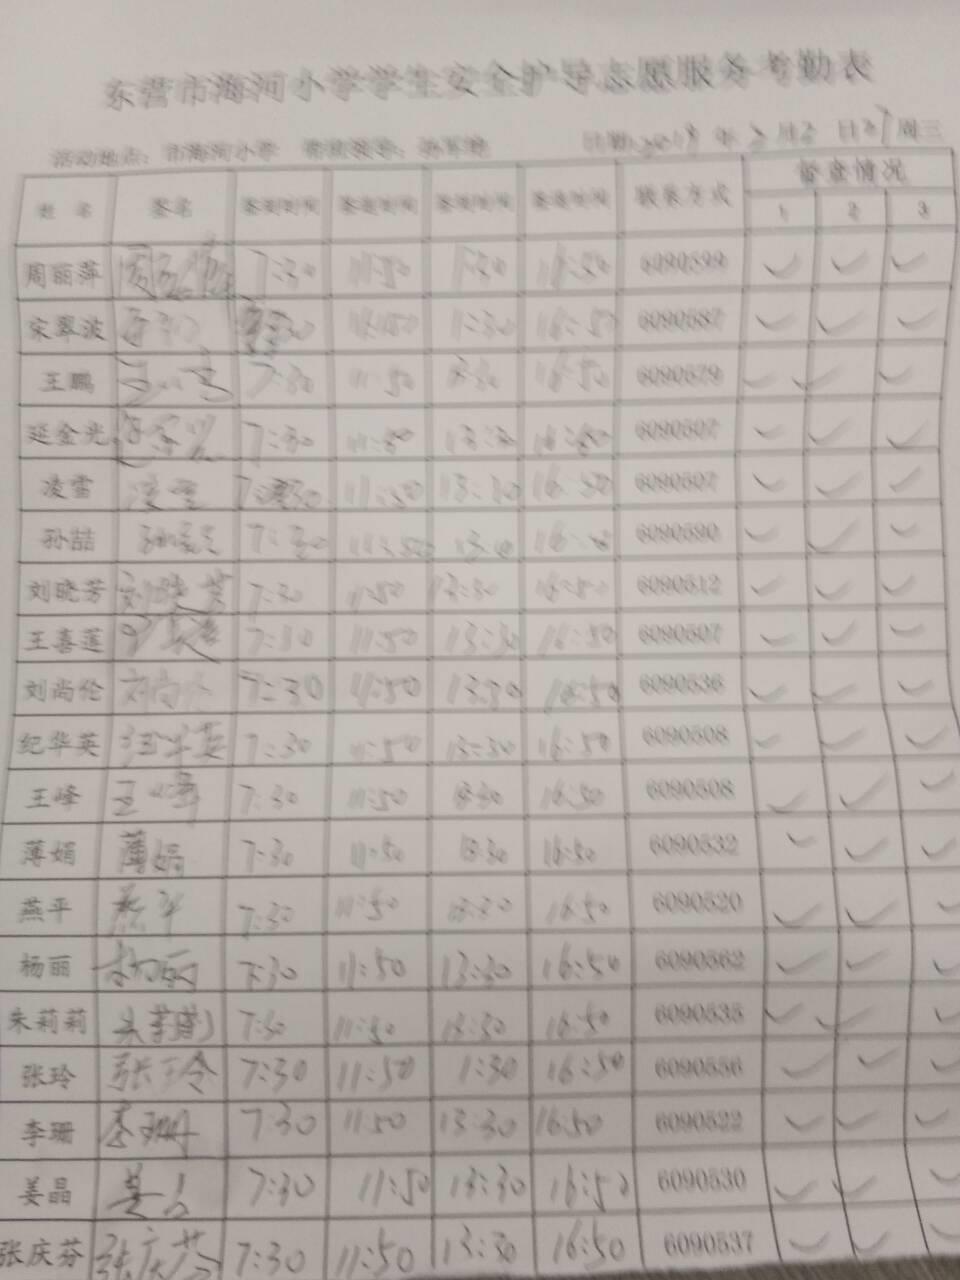 东营市海河小学学生安全护导志愿服务考勤表
活动地点：市海河小学
周三
姓名 签名 签到时间 签退时间 签到时间 签退时间 联系方式 督查情况
1 2 3
周丽萍 7:30 11:50 1:30 16:50 ✓ ✓ ✓
宋翠波 16:50 6090587 ✓ ✓ ✓
王鹏 7:30 11:50 13:30 16:50 6090579 ✓ ✓ ✓
延金光 延金光 7:30 11:50 13:30 16:50 6090507 ✓ ✓ ✓
凌雪 凌雪 11:50 13:30 16:50 6090507 ✓ ✓ ✓
孙喆 7:30 11:50 6090590 ✓ ✓ ✓
刘晓芳 刘晓芳 7:30 11:50 13:30 16:50 6090512 ✓ ✓ ✓
王喜莲 7:30 11:50 13:30 16:50 6090507 ✓ ✓ ✓
刘尚伦 刘尚伦 7:30 11:50 13:30 16:50 6090536 ✓ ✓ ✓
纪华英 纪华英 7:30 11:50 13:30 16:50 6090508 ✓ ✓ ✓
王峰 王峰 7:30 11:50 13:30 16:50 6090508 ✓ ✓ ✓
薄娟 薄娟 7:30 11:50 13:30 16:50 6090532 ✓ ✓ ✓
燕平 燕平 7:30 11:50 13:30 16:50 6090520 ✓ ✓ ✓
杨丽 杨丽 7:30 11:50 13:30 16:50 6090562 ✓ ✓ ✓
朱莉莉 7:30 11:50 13:30 16:50 6090535 ✓ ✓ ✓
张玲 张玲 7:30 11:50 1:30 16:50 6090556 ✓ ✓ ✓
李珊 李珊 7:30 11:50 13:30 16:50 6090522 ✓ ✓ ✓
姜晶 姜晶 7:30 11:50 13:30 16:50 6090530 ✓ ✓ ✓
张庆芬 张庆芬 7:30 11:50 13:30 16:50 6090537 ✓ ✓ ✓